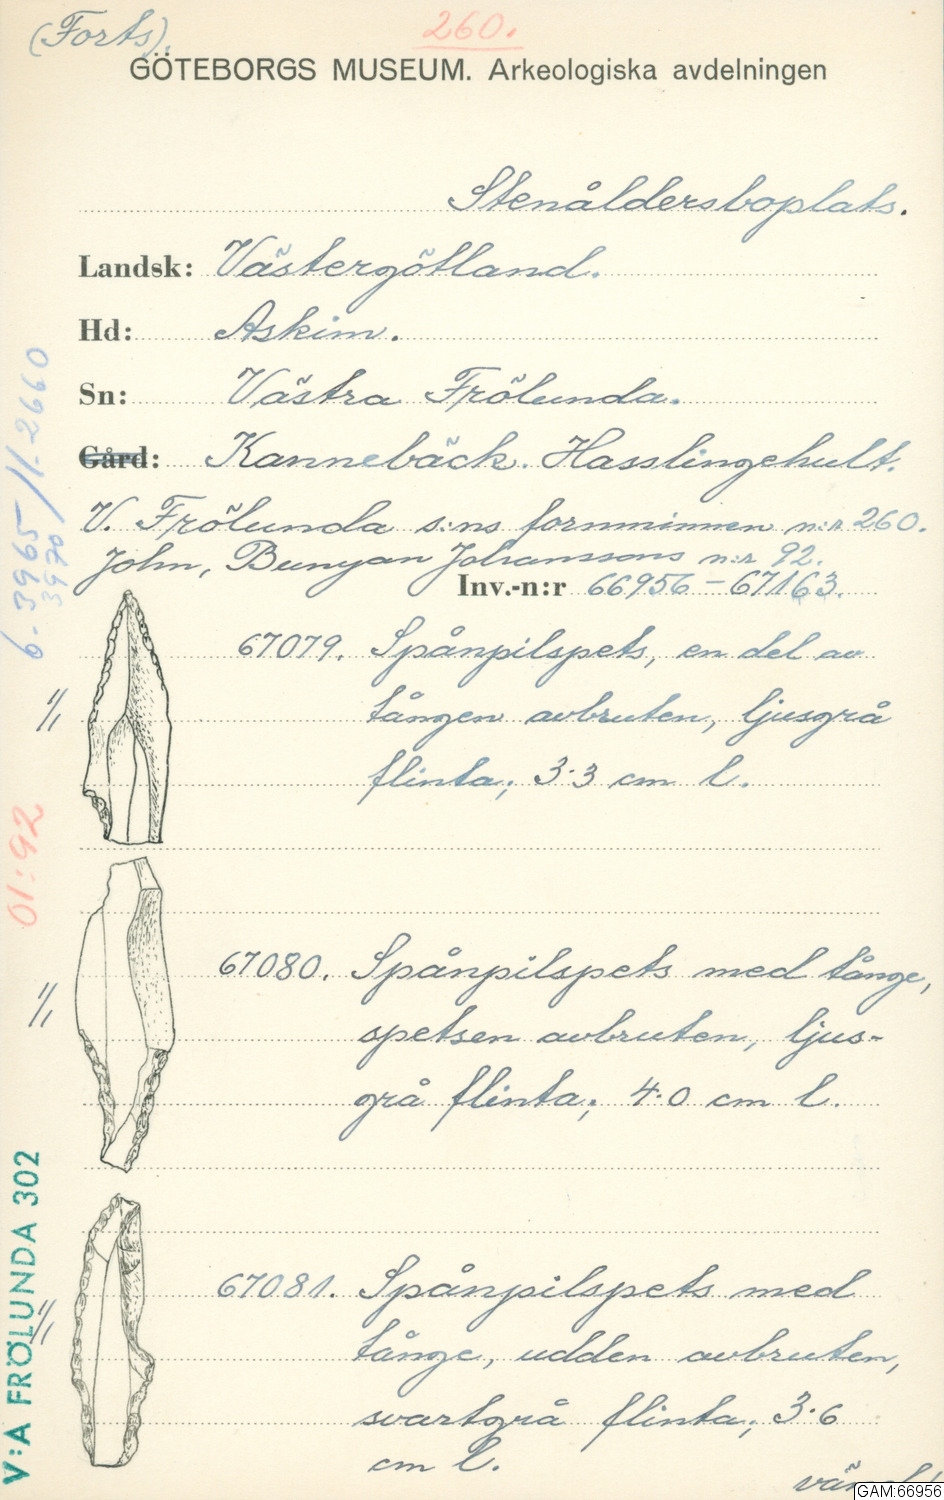 (Forts).
260.
GÖTEBORGS MUSEUM. Arkeologiska avdelningen
Stenåldersboplats.
Landsk: Västergötland.
Hd: Askim.
Sn: Västra Frölunda.
Gård: Kannebäck. Hasslingehult.
V. Frölunda s:ns fornminnen n:r 260.
John, Bunyan Johanssons n:r 92.
Inv.-n:r 66956 – 67163.
67079. Spånpilspets, en del av
tången avbruten, ljusgrå
flinta; 3.3 cm l.
1/1
67080. Spånpilspets med tånge,
spetsen avbruten, ljus-
grå flinta; 4.0 cm l.
1/1
67081. Spånpilspets med
tånge, udden avbruten,
svartgrå flinta; 3.6
cm l.
1/1
6-3965/1-2660
3970
01:92
V:A FRÖLUNDA 302
GAM:66956